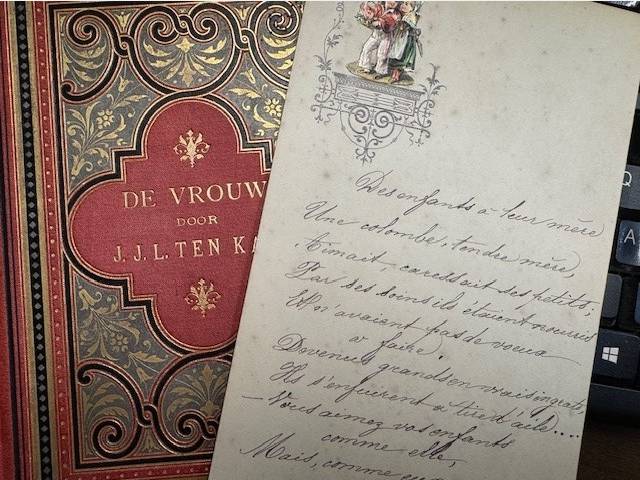 DE VROUW
DOOR
J. J. L. TEN KA
Des enfants à leur mère
Une colombe, tendre mère,
Aimait, caressait ses petits;
Par ses soins ils étaient nourris
Et n'avaient pas de voeux
à faire.
Devenus grands en vrais ingrats,
Ils s'enfuirent à tire d'aile....
– Vous aimez vos enfants
comme elle,
Mais, comme
Q
A